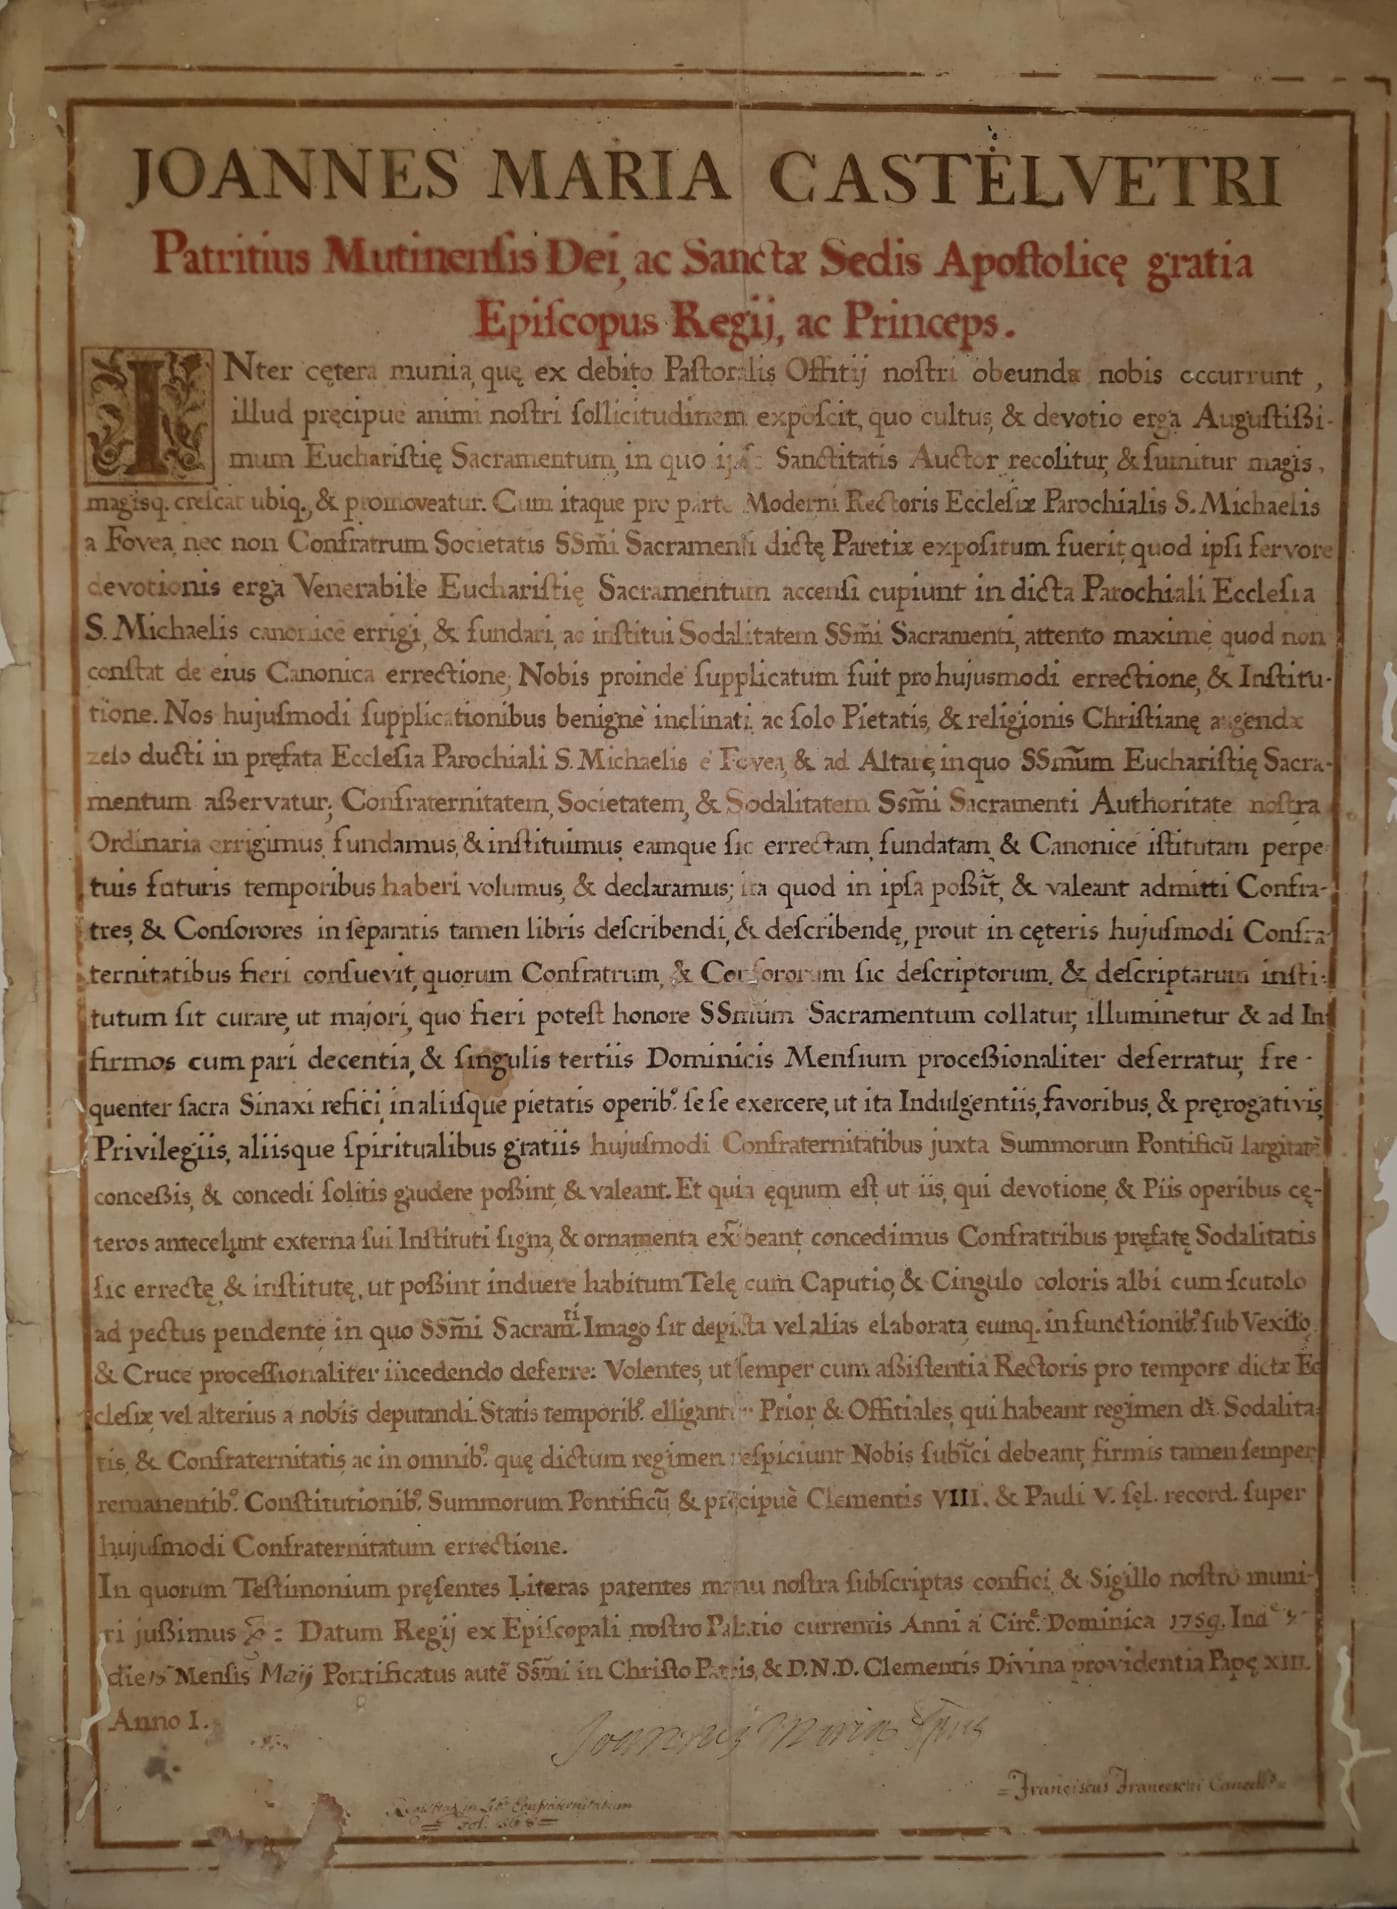 JOANNES MARIA CASTELVETRI
Patritius Mutinenſis Dei, ac Sanctæ Sedis Apoſtolicę gratia
Epiſcopus Regij, ac Princeps.
INter cętera munia, quę ex debito Paſtoralis Offitij noſtri obeunda nobis occurrunt,
illud pręcipue animi noſtri ſollicitudinem expoſcit, quo cultus, & devotio erga Auguſtißi-
mum Euchariſtię Sacramentum, in quo Sanctitatis Auctor recolitur, & ſumitur magis,
magisq. creſcat ubiq., & promoveatur. Cum itaque pro parte Moderni Rectoris Eccleſiæ Parochialis S. Michaelis
a Fovea, nec non Confratrum Societatis SSm̃i Sacramenti dictę Paretiæ expoſitum fuerit, quod ipſi fervore
devotionis erga Venerabile Euchariſtię Sacramentum accenſi cupiunt in dicta Parochiali Eccleſia
S. Michaelis canonicè errigi, & fundari, ac inſtitui Sodalitatem SSm̃i Sacramenti, attento maximè quod non
conſtat de eius Canonica errectione, Nobis proinde ſupplicatum fuit pro hujuſmodi errectione, & Inſtitu-
tione. Nos hujuſmodi ſupplicationibus benignè inclinati, ac ſolo Pietatis, & religionis Chriſtianę augendæ
zelo ducti in pręfata Eccleſia Parochiali S. Michaelis è Fovea, & ad Altare, in quo SSm̃um Euchariſtię Sacra-
mentum aßervatur; Confraternitatem, Societatem, & Sodalitatem Ssm̃i Sacramenti Authoritate noſtra
Ordinaria errigimus, fundamus, & inſtituimus, eamque ſic errectam, fundatam, & Canonicè iſtitutam perpe
tuis futuris temporibus haberi volumus, & declaramus; ita quod in ipſa poßit, & valeant admitti Confra-
tres, & Conſorores in ſeparatis tamen libris deſcribendi, & deſcribendę, prout in cęteris hujuſmodi Confra-
ternitatibus fieri conſuevit, quorum Confratrum, & Conſororum ſic deſcriptorum, & deſcriptarum inſti-
tutum ſit curare, ut majori, quo fieri poteſt honore SSmum Sacramentum collatur, illuminetur & ad In
firmos cum pari decentia, & ſingulis tertiis Dominicis Menſium proceßionaliter deferratur, fre-
quenter ſacra Sinaxi refici, in aliiſque pietatis operib.⁹ ſe ſe exercere, ut ita Indulgentiis, favoribus, & pręrogativis,
Privilegiis, aliisque ſpiritualibus gratiis hujuſmodi Confraternitatibus juxta Summorum Pontificũ largitatẽ
conceßis, & concedi ſolitis gaudere poßint, & valeant. Et quia ęquum eſt, ut iis, qui devotione, & Piis operibus cę-
teros antecelunt externa ſui Inſtituti ſigna, & ornamenta exhibeant, concedimus Confratribus pręfatę Sodalitatis
ſic errectę, & inſtitutę, ut poßint induere habitum Telę cum Caputio, & Cingulo coloris albi cum ſcutolo
ad pectus pendente in quo SSm̃i Sacram.ti Imago ſit depicta vel alias elaborata, eumq. in functionib.⁹ ſub Vexilo,
& Cruce proceſſionaliter incedendo deferre: Volentes, ut ſemper cum aßiſtentia Rectoris pro tempore dictæ Ec
cleſiæ, vel alterius a nobis deputandi. Statis temporib.⁹ elligantur Prior, & Offitiales, qui habeant regimen dt̃. Sodalita-
tis, & Confraternitatis, ac in omnib.⁹ quę dictum regimen reſpiciunt Nobis ſubjici debeant, firmis tamen ſemper
remanentib.⁹ Conſtitutionib.⁹ Summorum Pontificũ & pręcipuè Clementis VIII. & Pauli V. fęl. record. ſuper
hujuſmodi Confraternitatum errectione.
In quorum Teſtimonium pręſentes Literas patentes manu noſtra ſubſcriptas confici, & Sigillo noſtro muni-
ri jußimus Datum Regij ex Epiſcopali noſtro Palatio currentis Anni à Circ.e Dominica 1759. Ind.e
die Menſis Maij Pontificatus autẽ Sſm̃i in Chriſto Patris, & D.N.D. Clementis Divina providentia Papę XIII.
Anno I.
Joannes Maria Ep̃us
= Franciscus Franceschi Cancell.s =
Registrat. in Lib.o Confraternitatum